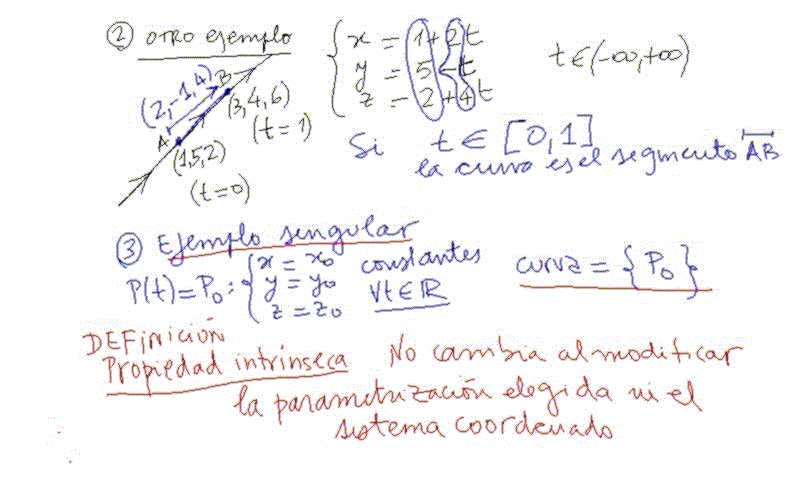 ② OTRO ejemplo
x = 1 + 2t
y = 5 - t
z = 2 + 4t
t ∈ (-∞, +∞)
(2, -1, 4)
B
(3, 4, 6)
(t = 1)
A
(1, 5, 2)
(t = 0)
Si t ∈ [0, 1]
la curva es el segmento AB
③ Ejemplo singular
P(t) = P₀ : { x = x₀
y = y₀
z = z₀
constantes
∀t ∈ ℝ
curva = { P₀ }
DEFINICIÓN
Propiedad intrínseca No cambia al modificar
la parametrización elegida ni el
sistema coordenado